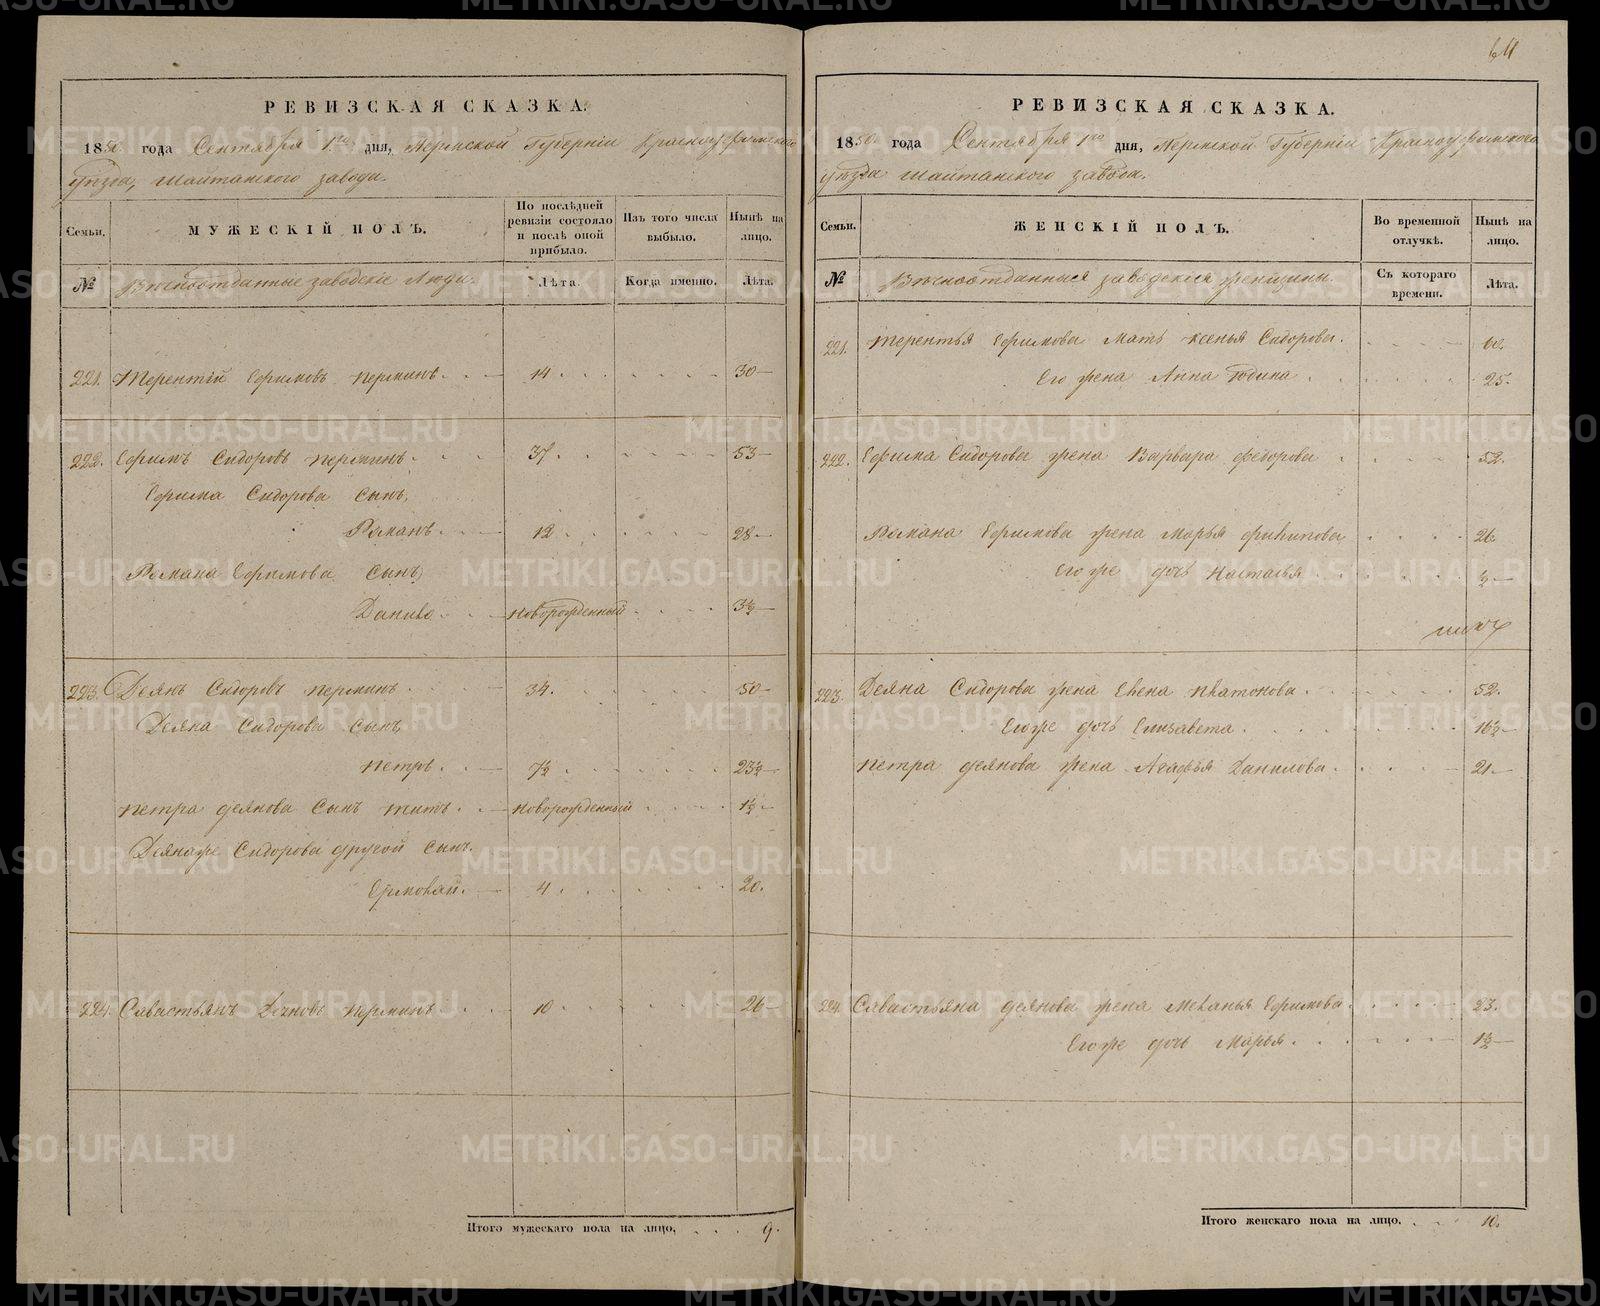 64
РЕВИЗСКАЯ СКАЗКА.
1850 года Сентября 1го дня, Пермской Губерніи Красноуфимскаго
уѣзда, Шайтанского завода.
Семьи.
МУЖЕСКІЙ ПОЛЪ.
По послѣдней ревизіи состояло и послѣ оной прибыло.
Изъ того числа выбыло.
Нынѣ на лицо.
№
Вѣчноотданные заводскіе Люди.
Лѣта.
Когда именно.
Лѣта.
221. Терентій Ефимовъ Перминъ. 14. 30
222. Ефимъ Сидоровъ Перминъ. 37. 53
Ефима Сидорова сынъ,
Романъ. 12. 28
Романа Ефимова сынъ,
Данило. новорожденный 3½
223. Деянъ Сидоровъ Перминъ. 34. 50
Деяна Сидорова сынъ,
Петръ. 7½ 23½
Петра Деянова сынъ Титъ. новорожденный 1½
Деянаже Сидорова другой сынъ.
Ермолай. 4. 20.
224. Савастьянъ Перминъ. 10. 26
Итого мужескаго пола на лицо. 9.
РЕВИЗСКАЯ СКАЗКА.
1850 года Сентября 1го дня, Пермской Губерніи Красноуфимского
уѣзда Шайтанского завода.
Семьи.
ЖЕНСКІЙ ПОЛЪ.
Во временной отлучкѣ.
Нынѣ на лицо.
№
Вѣчноотданныя заводскія женщины.
Съ котораго времени.
Лѣта.
221. Терентья Ефимова Мать Ксенья Сидорова. 60.
Его жена Анна Родина. 25.
222. Ефима Сидорова жена Варвара Федорова 52.
Романа Ефимова жена Марья Филипова 26.
Его же дочь Настасья. ½
223. Деяна Сидорова жена Елена Платонова. 52.
Его же дочь Елизавета. 16½
Петра Деянова жена Агафья Данилова. 21
224. Савастьяна Деянова жена Меланья Ефимова. 23.
Его же дочь Марья. 1½
Итого женскаго пола на лицо. 10.
METRIKI.GASO-URAL.RU